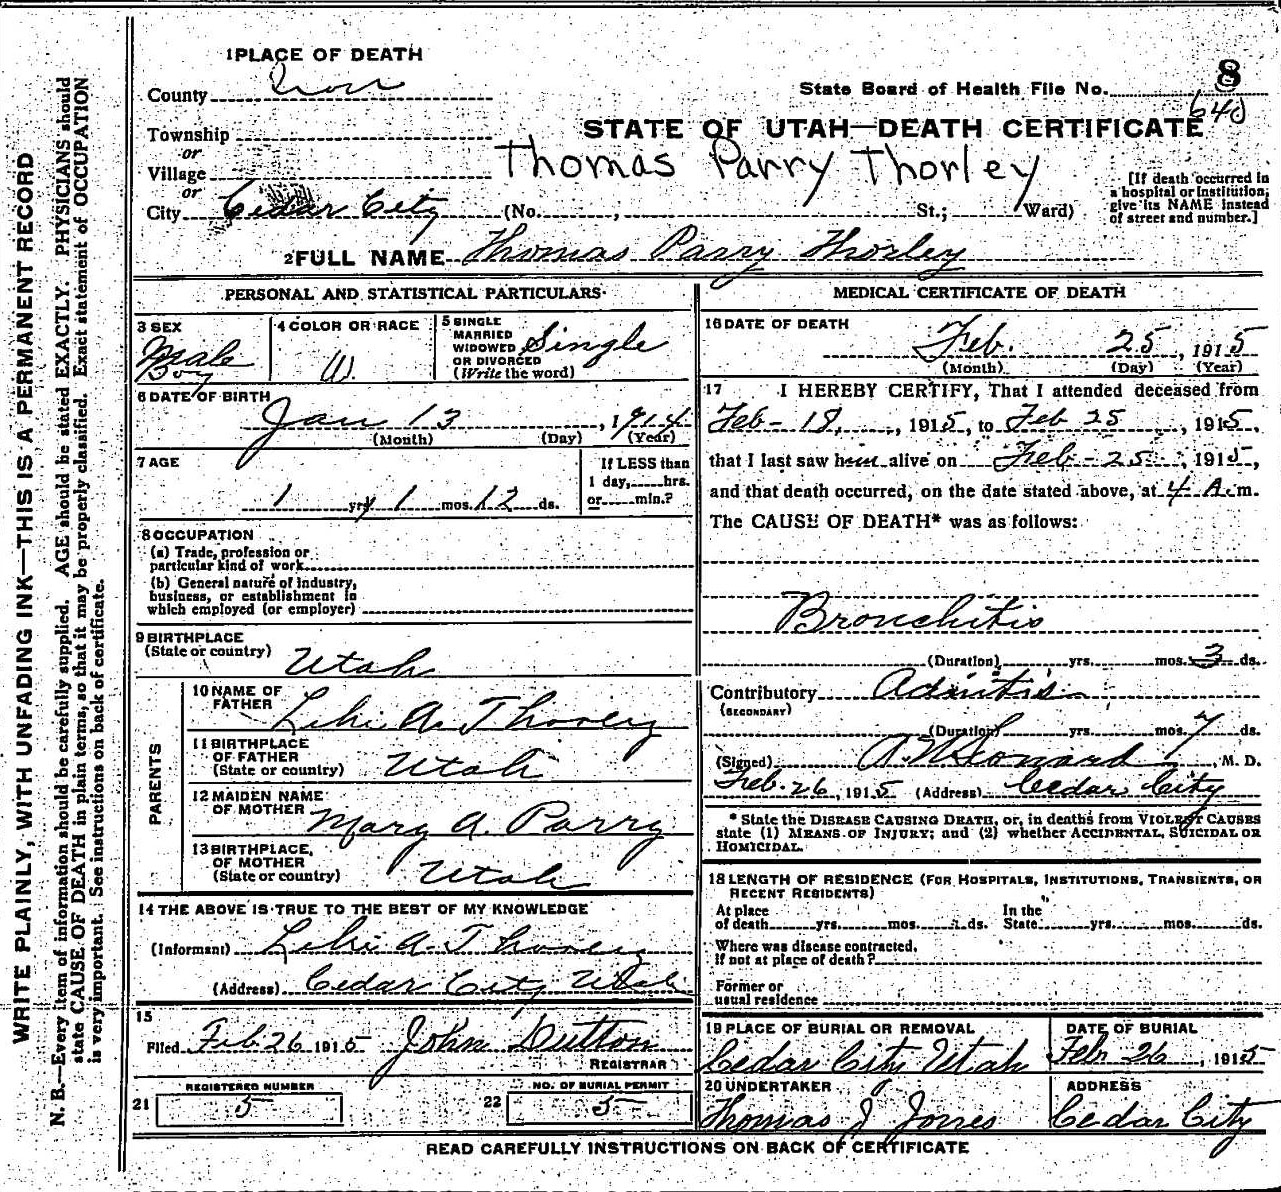 WRITE PLAINLY, WITH UNFADING INK—THIS IS A PERMANENT RECORD
N. B.—Every item of information should be carefully supplied. AGE should be stated EXACTLY. PHYSICIANS should
state CAUSE OF DEATH in plain terms, so that it may be properly classified. Exact statement of OCCUPATION
is very important. See instructions on back of certificate.
1 PLACE OF DEATH
County Iron
State Board of Health File No. 8
640
Township
or
STATE OF UTAH—DEATH CERTIFICATE
Village
or
Thomas Parry Thorley
[If death occurred in
a hospital or institution,
give its NAME instead
of street and number.]
City Cedar City (No. , St.; Ward)
2 FULL NAME Thomas Parry Thorley
PERSONAL AND STATISTICAL PARTICULARS
3 SEX
Male
Boy
4 COLOR OR RACE
W.
5 SINGLE
MARRIED
WIDOWED
OR DIVORCED
(Write the word)
Single
6 DATE OF BIRTH
Jan 13, 1914
(Month) (Day) (Year)
7 AGE
1 yrs 1 mos. 12 ds.
If LESS than
1 day, hrs.
or min.?
8 OCCUPATION
(a) Trade, profession or
particular kind of work
(b) General nature of industry,
business, or establishment in
which employed (or employer)
9 BIRTHPLACE
(State or country)
Utah
PARENTS
10 NAME OF
FATHER
Lehi A. Thorley
11 BIRTHPLACE
OF FATHER
(State or country)
Utah
12 MAIDEN NAME
OF MOTHER
Mary A. Parry
13 BIRTHPLACE
OF MOTHER
(State or country)
Utah
14 THE ABOVE IS TRUE TO THE BEST OF MY KNOWLEDGE
(Informant) Lehi A. Thorley
(Address) Cedar City Utah
15
Filed Feb 26 1915 John Dutton
REGISTRAR
REGISTERED NUMBER
21 5
NO. OF BURIAL PERMIT
22 5
MEDICAL CERTIFICATE OF DEATH
16 DATE OF DEATH
Feb. 25, 1915
(Month) (Day) (Year)
17 I HEREBY CERTIFY, That I attended deceased from
Feb - 18, 1915, to Feb 25, 1915,
that I last saw him alive on Feb - 25, 1915,
and that death occurred, on the date stated above, at 4 A.m.
The CAUSE OF DEATH* was as follows:
Bronchitis
(Duration) yrs. mos. 3 ds.
Contributory
(SECONDARY)
(Duration) yrs. mos. 7 ds.
(Signed) Leonard, M. D.
Feb. 26, 1915 (Address) Cedar City
* State the DISEASE CAUSING DEATH, or, in deaths from VIOLENT CAUSES
state (1) MEANS OF INJURY; and (2) whether ACCIDENTAL, SUICIDAL OR
HOMICIDAL.
18 LENGTH OF RESIDENCE (FOR HOSPITALS, INSTITUTIONS, TRANSIENTS, OR
RECENT RESIDENTS)
At place
of death yrs. mos. ds.
In the
State yrs. mos. ds.
Where was disease contracted,
if not at place of death?
Former or
usual residence
19 PLACE OF BURIAL OR REMOVAL
Cedar City Utah
DATE OF BURIAL
Feb 26, 1915
20 UNDERTAKER
Thomas J Jones
ADDRESS
Cedar City
READ CAREFULLY INSTRUCTIONS ON BACK OF CERTIFICATE